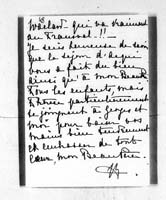 qui va vraiment
au Transvaal.!!
Je suis heureuse de savoir
que le séjour d'
vous a fait du bien
ainsi qu'à mon Beau
Tous les enfants, mais
particulièrement
se joignent à Georges et
moi pour baiser vos
mains bien tendrement
et embrasser de tout
cœur mon Beau Père.